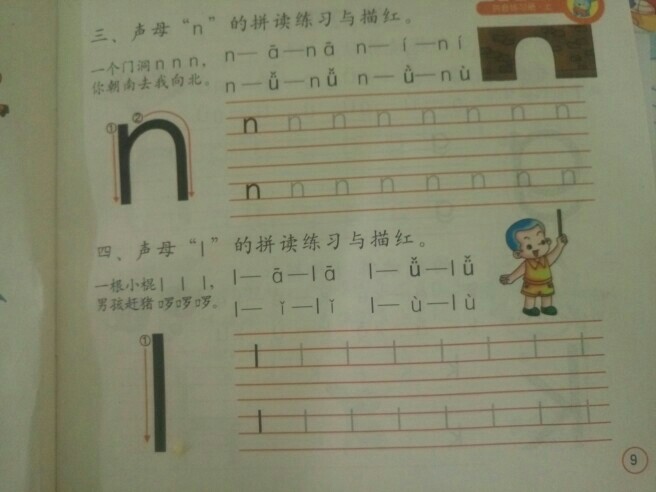 三、声母“n”的拼读练习与描红。
一个门洞n n n,
你朝南去我向北。
n— ā—nā n— í—ní
n— ǚ—nǚ n— ǜ—nù
① ② n
n n n n n n n n
n n n n n n n n
四、声母“l”的拼读练习与描红。
一根小棍l l l,
男孩赶猪啰啰啰。
l— ā—lā l— ǚ—lǚ
l— ǐ—lǐ l— ù—lù
① l
l l l l l l l l
l l l l l l l l
9